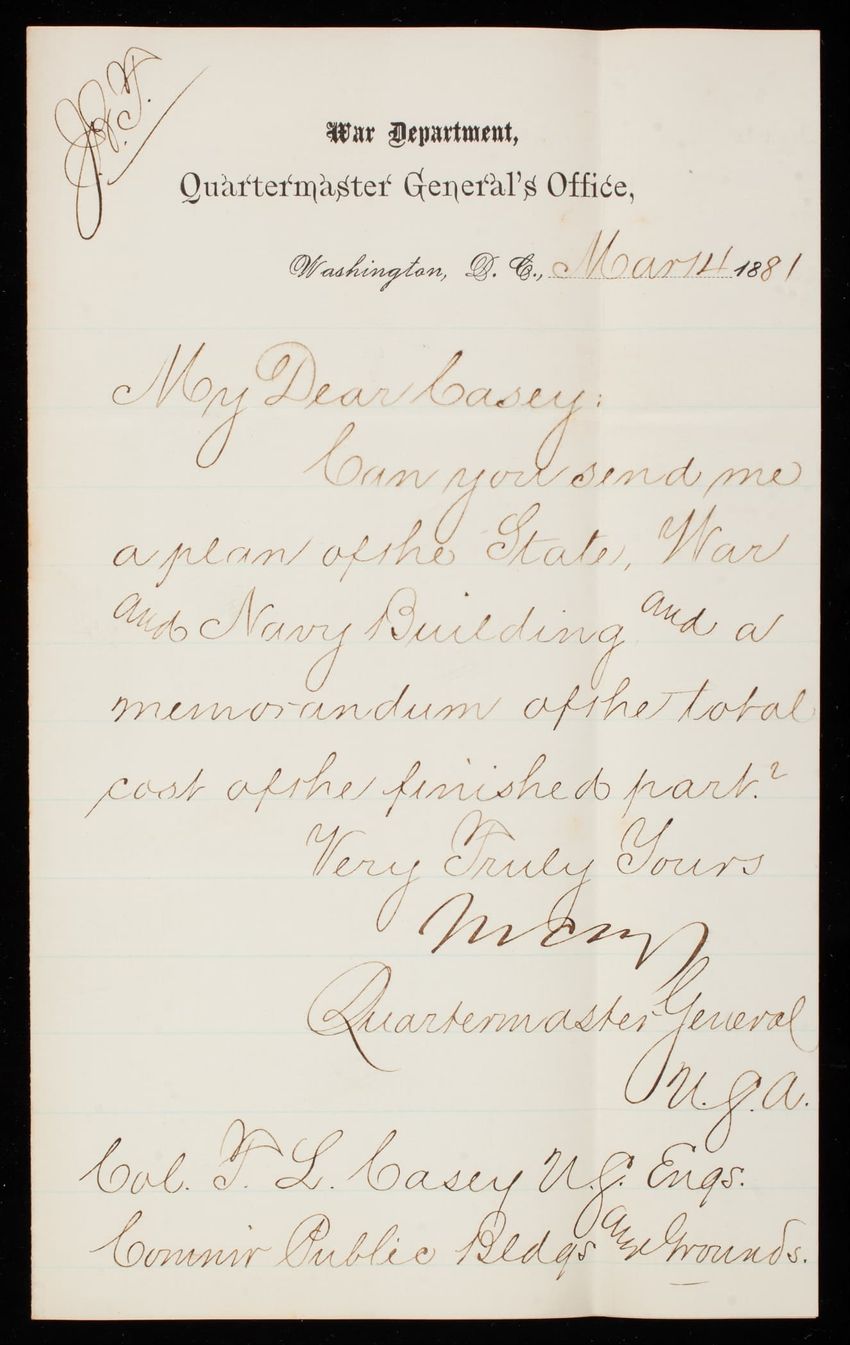 War Department,
Quartermaster General's Office,
Washington, D. C., Mar 14 1881
My Dear Casey:
Can you send me
a plan of the State, War
and Navy Building and a
memorandum of the total
cost of the finished part?
Very Truly Yours
Quartermaster General
U.S.A.
Col. T. L. Casey U.S. Engs.
Commr Public Bldgs and Grounds.